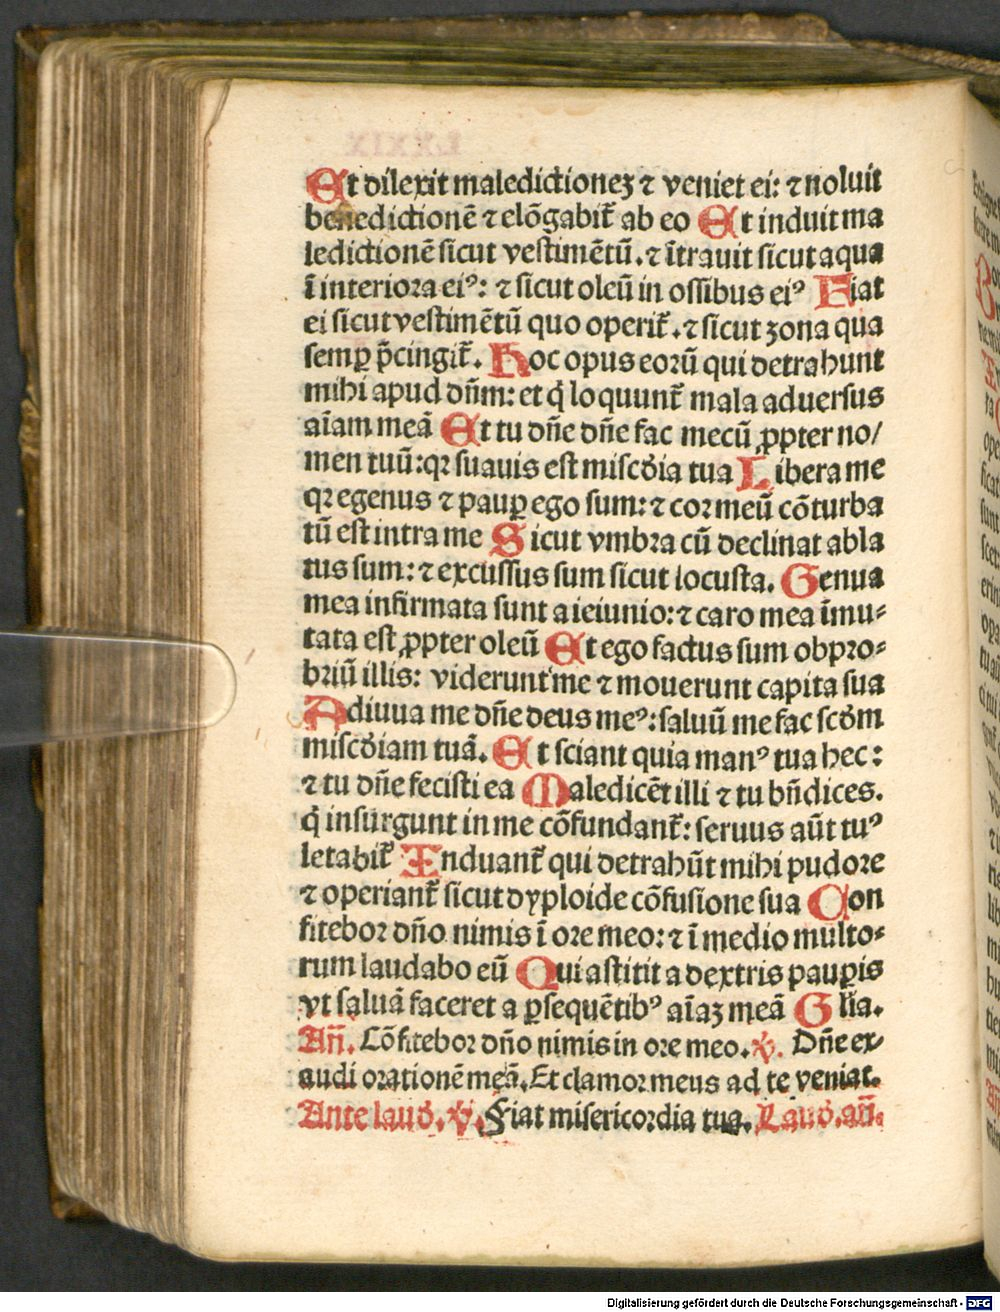 Et dilexit maledictioneꝫ ⁊ veniet ei: ⁊ noluit
benedictionē ⁊ elōgabit᷑ ab eo Et induit ma
ledictionē sicut vestimētū. ⁊ ītrauit sicut aqua
ī interiora eiꝰ: ⁊ sicut oleū in ossibus eiꝰ Fiat
ei sicut vestimētū quo operit᷑. ⁊ sicut zona qua
semꝑ p̄cingit᷑. Hoc opus eorū qui detrahunt
mihi apud dn̄m: et q̇ loquunt᷑ mala aduersus
aīam meā Et tu dn̄e dn̄e fac mecū ꝓpter no/
men tuū: qꝛ suauis est mis̄c̄dia tua Libera me
qꝛ egenus ⁊ pauꝑ ego sum: ⁊ cor meū cōturba
tū est intra me Sicut vmbra cū declinat abla
tus sum: ⁊ excussus sum sicut locusta. Genua
mea infirmata sunt a ieiunio: ⁊ caro mea īmu⸗
tata est ꝓpter oleū Et ego factus sum obpro⸗
briū illis: viderunt me ⁊ mouerunt capita sua
Adiuua me dn̄e deus meꝰ: saluū me fac scd̄m
miscd̄iam tuā. Et sciant quia manꝰ tua hec:
⁊ tu dn̄e fecisti ea Maledicēt illi ⁊ tu bn̄dices.
q̇ insurgunt in me cōfundant᷑: seruus aūt tuꝰ
letabit᷑ Induant᷑ qui detrahūt mihi pudore
⁊ operiant᷑ sicut dyploide cōfusione sua Con
fitebor dn̄o nimis ī ore meo: ⁊ ī medio multo⸗
rum laudabo eū Qui astitit a dextris pauꝑis
vt saluā faceret a ꝑsequētibꝰ aīaꝫ meā Glīa.
An̄. Cōfitebor dn̄o nimis in ore meo. ℣. Dn̄e ex⸗
audi orationē meā. Et clamor meus ad te veniat.
Ante laud̄. ℣. Fiat misericordia tua. Laud̄. an̄.
Digitalisierung gefördert durch die Deutsche Forschungsgemeinschaft - DFG